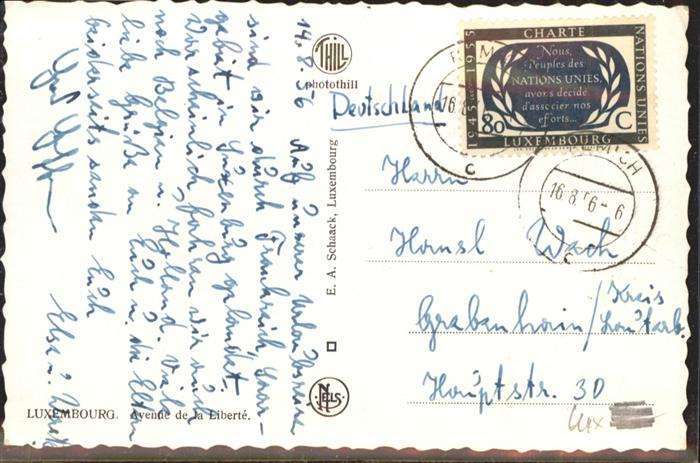 14.8.56 Auf unserer Urlaubsreise
sind wir durch Frankreich, Saar-
gebiet in Luxenburg gelandet.
Warscheinlich fahren wir auch
noch Belgien u. Holland. Viele
liebe Grüße an Euch u. die Eltern
beiderseits senden Euch
Else u.
THILL
photothill
Deutschland
E. A. Schaack, Luxembourg
NELS
LUXEMBOURG. Avenue de la Liberté.
CHARTE
NATIONS UNIES
1945 1955
Nous,
Peuples des
NATIONS UNIES,
avons décidé
d'associer nos
efforts...
80 C
LUXEMBOURG
REMICH
16.8.56-6
C
Herrn
Hansl Wach
Grebenhain/Kreis
Lauterb.
Hauptstr. 30
Lux